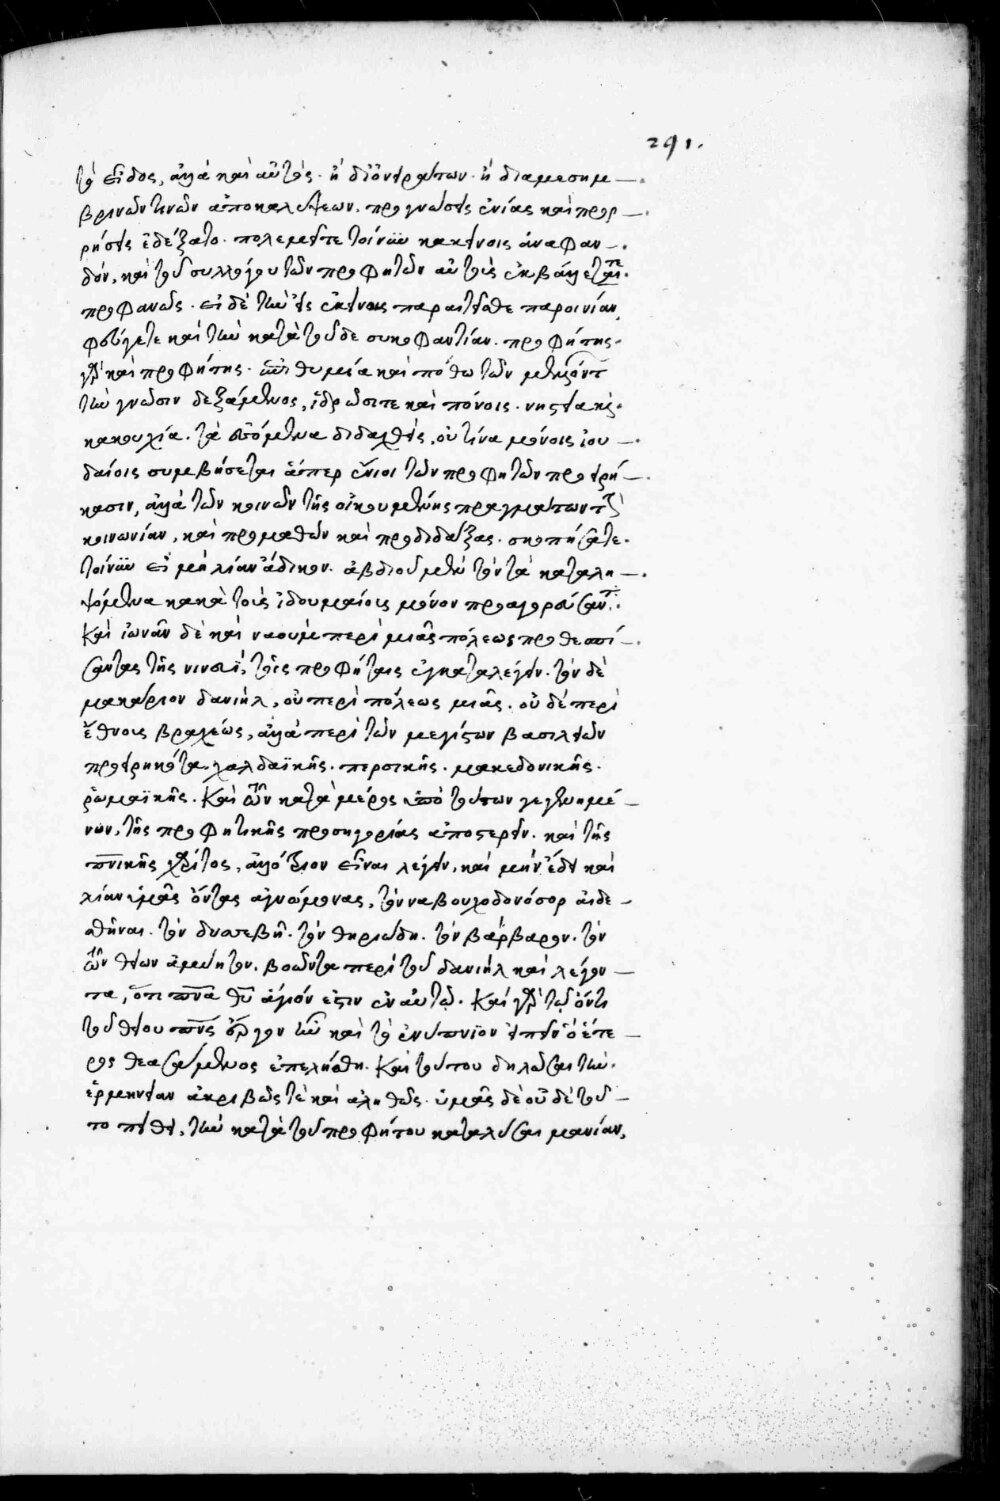 291.
τὸ εἶδος, ἀλλὰ καὶ αὐτὸς. ἢ δι' ὀνειράτων. ἢ διὰ μεσημ
βρινῶν τινῶν ἀποκαλύψεων. προγνώσεις ἐνίας καὶ προρ
ρήσεις ἐδέξατο. πολεμεῖτε τοίνυν κακείνοις ἀναφαν
δόν, καὶ τοῦ συλλόγου τῶν προφητῶν αὐτοὺς ἐκβάλλετε
προφανῶς. εἰ δὲ τὴν εἰς ἐκείνους παραιτεῖσθε παροινίαν,
φεύγετε καὶ τὴν κατὰ τοῦδε συκοφαντίαν. προφήτης
γὰρ καὶ προφήτης. ἐπιθυμία καὶ πόθω τῶν μειζόντ
τὴν γνῶσιν δεξάμενος, ἱδρώσι τε καὶ πόνοις. νηστεία καὶ
κακουχία. τὰ ἑπόμενα διδαχθεὶς, οὐ τίνα μόνοις ἰου
δαίοις συμβήσεται ὥσπερ ἔνιοι τῶν προφητῶν προειρή
κασιν, ἀλλὰ τῶν κοινῶν τῆς οἰκουμένης πραγμάτων τὴν
κοινωνίαν, καὶ προμαθὼν καὶ προδιδάξας. σκοπήσατε
τοίνυν εἰ μὴ λίαν ἄδικον. ἀβδιοῦ μὲν τὸν τὰ καταλη
ψόμενα κακὰ τοὺς ἰδουμαίους μόνον προαγορεύσαντ
Καὶ ἰωνᾶν δὲ καὶ ναοὺμ περὶ μιᾶς πόλεως προθεσπί
σαντας τῆς νινευί, τοῖς προφήταις ἐγκαταλέγειν. τὸν δὲ
μακάριον δανιὴλ, οὐ περὶ πόλεως μιᾶς. οὐδὲ περὶ
ἔθνους βραχέως, ἀλλὰ περὶ τῶν μεγίστων βασιλειῶν
προειρηκότα. χαλδαϊκῆς. περσικῆς. μακεδονικῆς.
ῥωμαϊκῆς. Καὶ τῶν κατὰ μέρος ὑπὸ τούτων γεγενημέ
νων, τῆς προφητικῆς προσηγορίας ἀποστερεῖν. καὶ τῆς
πνικῆς χάριτος, ἀλλότριον εἶναι λέγειν. καὶ μὴν ἔδει καὶ
λίαν ὑμᾶς ὄντας ἀγνώμονας, τὸν ναβουχοδονόσορ αἰδε
σθῆναι. τὸν δυσσεβῆ. τὸν θηριώδη. τὸν βάρβαρον. τὸν
τῶν θείων ἀμύητον. βοῶντα περὶ τοῦ δανιὴλ καὶ λέγον
τα, ὅτι πνα θυ ἅγιόν ἐστιν ἐν αὐτῷ. Καὶ γὰρ τῷ ὄντι
τοῦ θείου πνς ἔργον ἦν καὶ τὸ ἐνύπνιον εἰπεῖν ὃ ἕτε
ρος θεασάμενος ἐπελήσθη. Καὶ τούτου δηλῶσαι τὴν
ἑρμηνείαν ἀκριβῶς τὲ καὶ ἀληθῶς. ὑμᾶς δὲ οὐδὲ τοῦ
το πείθει, τὴν κατὰ τοῦ προφήτου καταλῦσαι μανίαν,